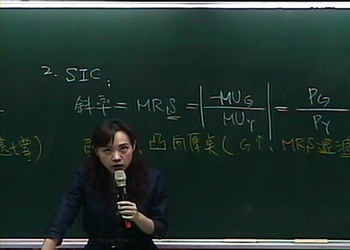 2. SIC:
斜率 = MRS = |-MU_G / MU_Y| = P_G / P_Y
凸向原點 (G↑, MRS遞減